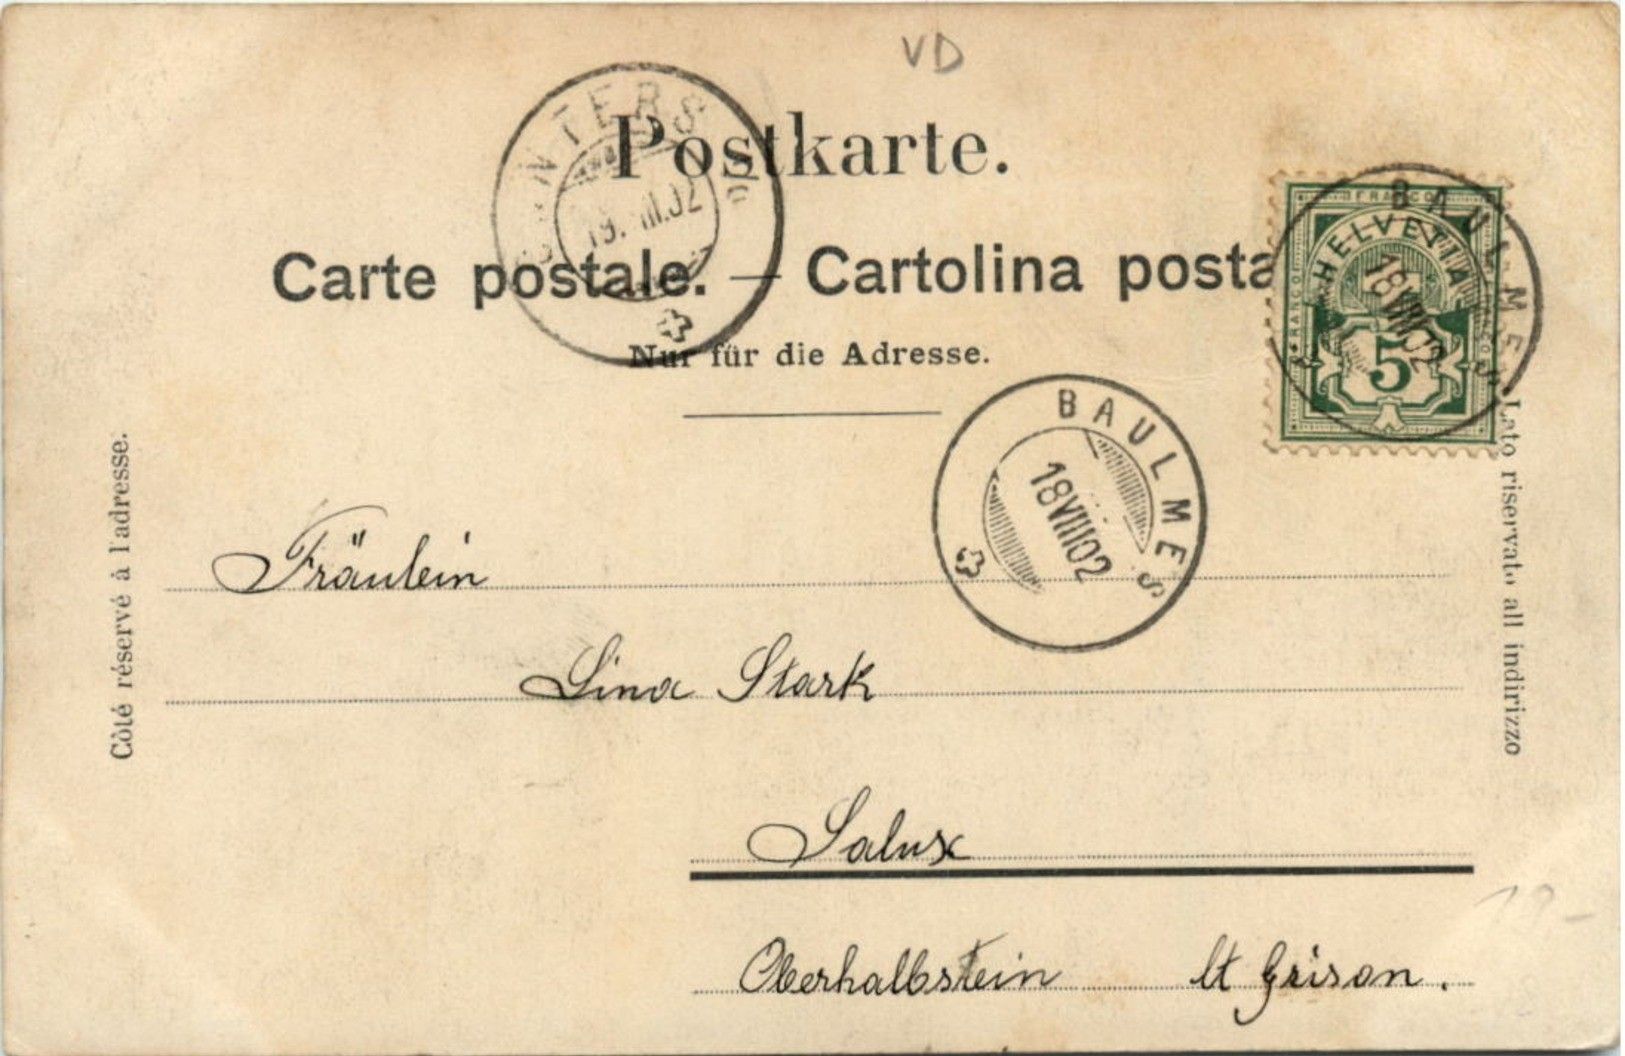 VD
Postkarte.
Carte postale. — Cartolina posta
Nur für die Adresse.
19. 02
FRANCO
HELVETIA
5
BAULMES
18 VIII 02
BAULMES
18 VIII 02
Côté réservé à l'adresse.
Lato riservato all indirizzo
Fräulein
Lina Stark
Salux
Oberhalbstein Ct Grison.